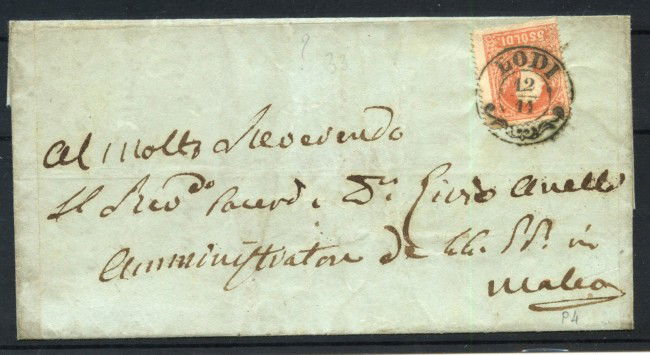 5 SOLDI
LODI
12
11
? 33
Al Molto Reverendo
Il Rev.do Sacerd.e D.n
Amministratore de LL. PP. in
Maleo
P4